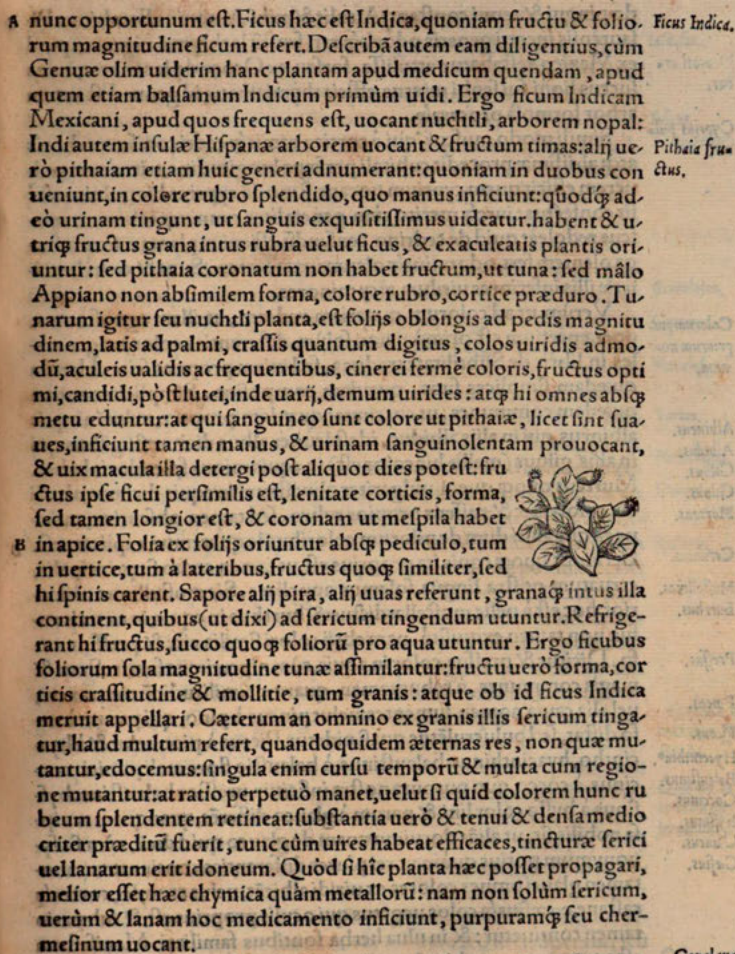 A nunc opportunum eſt. Ficus hæc eſt Indica, quoniam fructu & folio- Ficus Indica.
rum magnitudine ficum refert. Deſcribã autem eam diligentius, cùm
Genuæ olim uiderim hanc plantam apud medicum quendam, apud
quem etiam balſamum Indicum primùm uidi. Ergo ficum Indicam
Mexicani, apud quos frequens eſt, uocant nuchtli, arborem nopal:
Indi autem inſulæ Hiſpanæ arborem uocant & fructum timas: alij ue- Pithaia fru-
rò pithaiam etiam huic generi adnumerant: quoniam in duobus con ctus.
ueniunt, in colore rubro ſplendido, quo manus inficiunt: quòdq́; ad-
eò urinam tingunt, ut ſanguis exquiſitiſſimus uideatur. habent & u-
triq; fructus grana intus rubra uelut ficus, & ex aculeatis plantis ori-
untur: ſed pithaia coronatum non habet fructum, ut tuna: ſed mâlo
Appiano non abſimilem forma, colore rubro, cortice præduro. Tu-
narum igitur ſeu nuchtli planta, eſt folijs oblongis ad pedis magnitu
dinem, latis ad palmi, craſſis quantum digitus, colos uiridis admo-
dũ, aculeis ualidis ac frequentibus, cinerei fermè coloris, fructus opti
mi, candidi, pòſt lutei, inde uarij, demum uirides: atq; hi omnes abſq;
metu eduntur: at qui ſanguineo ſunt colore ut pithaiæ, licet ſint ſua-
ues, inficiunt tamen manus, & urinam ſanguinolentam prouocant,
& uix macula illa detergi poſt aliquot dies poteſt: fru
ctus ipſe ficui perſimilis eſt, lenitate corticis, forma,
ſed tamen longior eſt, & coronam ut meſpila habet
B in apice. Folia ex folijs oriuntur abſq; pediculo, tum
in uertice, tum à lateribus, fructus quoq; ſimiliter, ſed
hi ſpinis carent. Sapore alij pira, alij uuas referunt, granaq́; intus illa
continent, quibus (ut dixi) ad ſericum tingendum utuntur. Refrige-
rant hi fructus, ſucco quoq; foliorũ pro aqua utuntur. Ergo ficubus
foliorum ſola magnitudine tunæ aſſimilantur: fructu uerò forma, cor
ticis craſſitudine & mollitie, tum granis: atque ob id ficus Indica
meruit appellari. Cæterum an omnino ex granis illis ſericum tinga-
tur, haud multum refert, quandoquidem æternas res, non quæ mu-
tantur, edocemus: ſingula enim curſu temporũ & multa cum regio-
ne mutantur: at ratio perpetuò manet, uelut ſi quid colorem hunc ru
beum ſplendentem retineat: ſubſtantia uerò & tenui & denſa medio
criter præditũ fuerit, tunc cùm uires habeat efficaces, tincturæ ſerici
uel lanarum erit idoneum. Quòd ſi hîc planta hæc poſſet propagari,
melior eſſet hæc chymica quàm metallorũ: nam non ſolùm ſericum,
uerùm & lanam hoc medicamento inficiunt, purpuramq́; ſeu cher-
meſinum uocant.